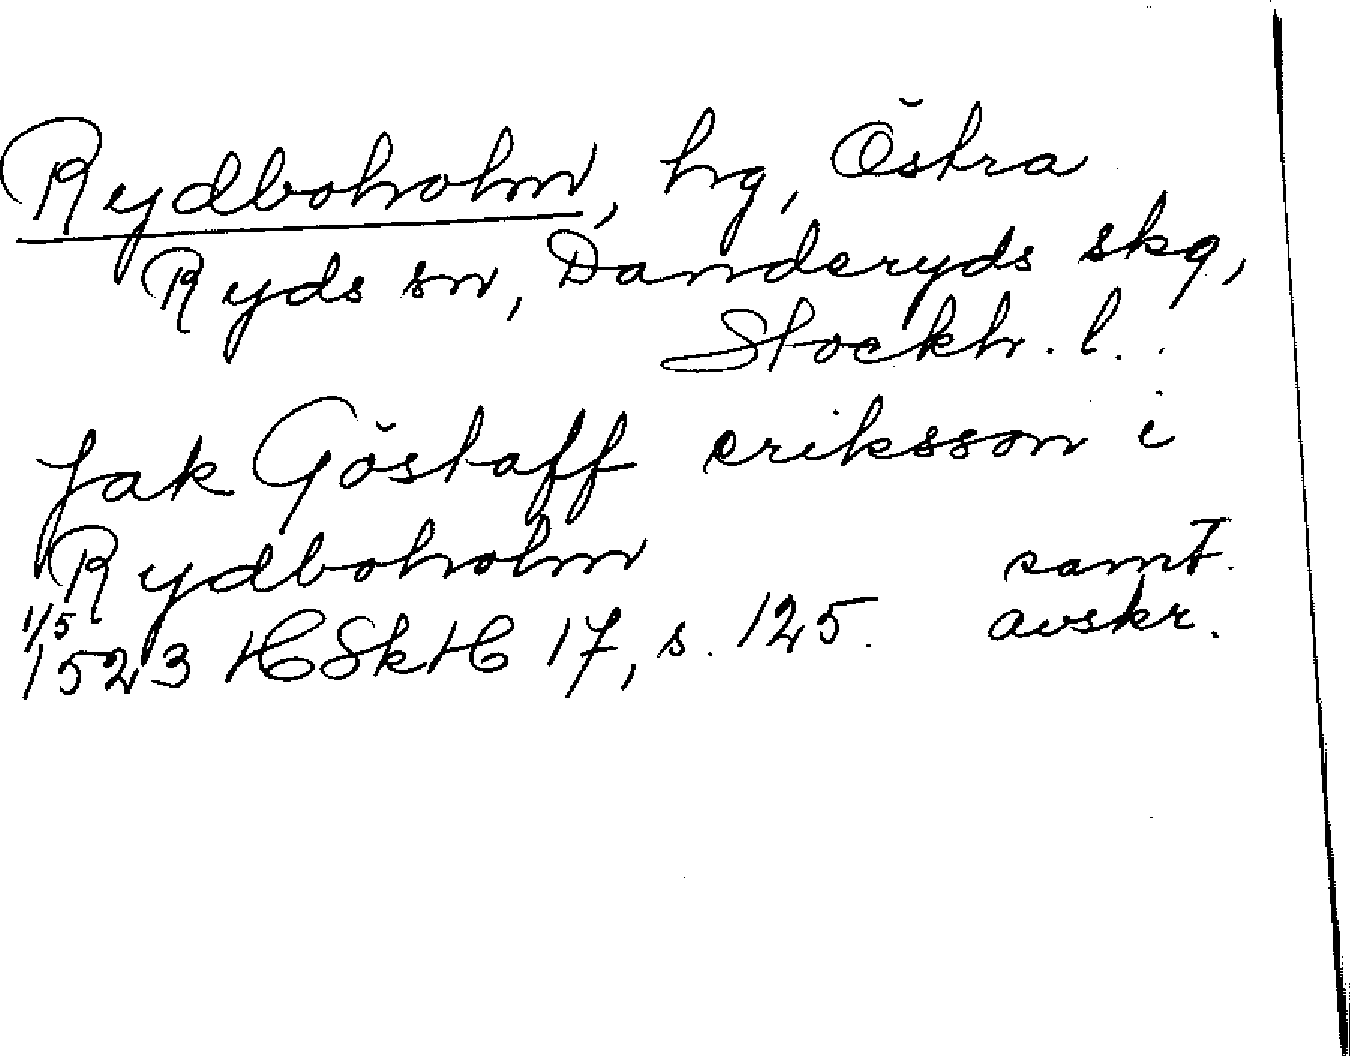 Rydboholm, hg, Östra
Ryds sn, Danderyds skg,
Stockh. l..
Jak Göstaff eriksson i
Rydboholm samt.
1/5 avskr.
1523 HSkH 17, s. 125.